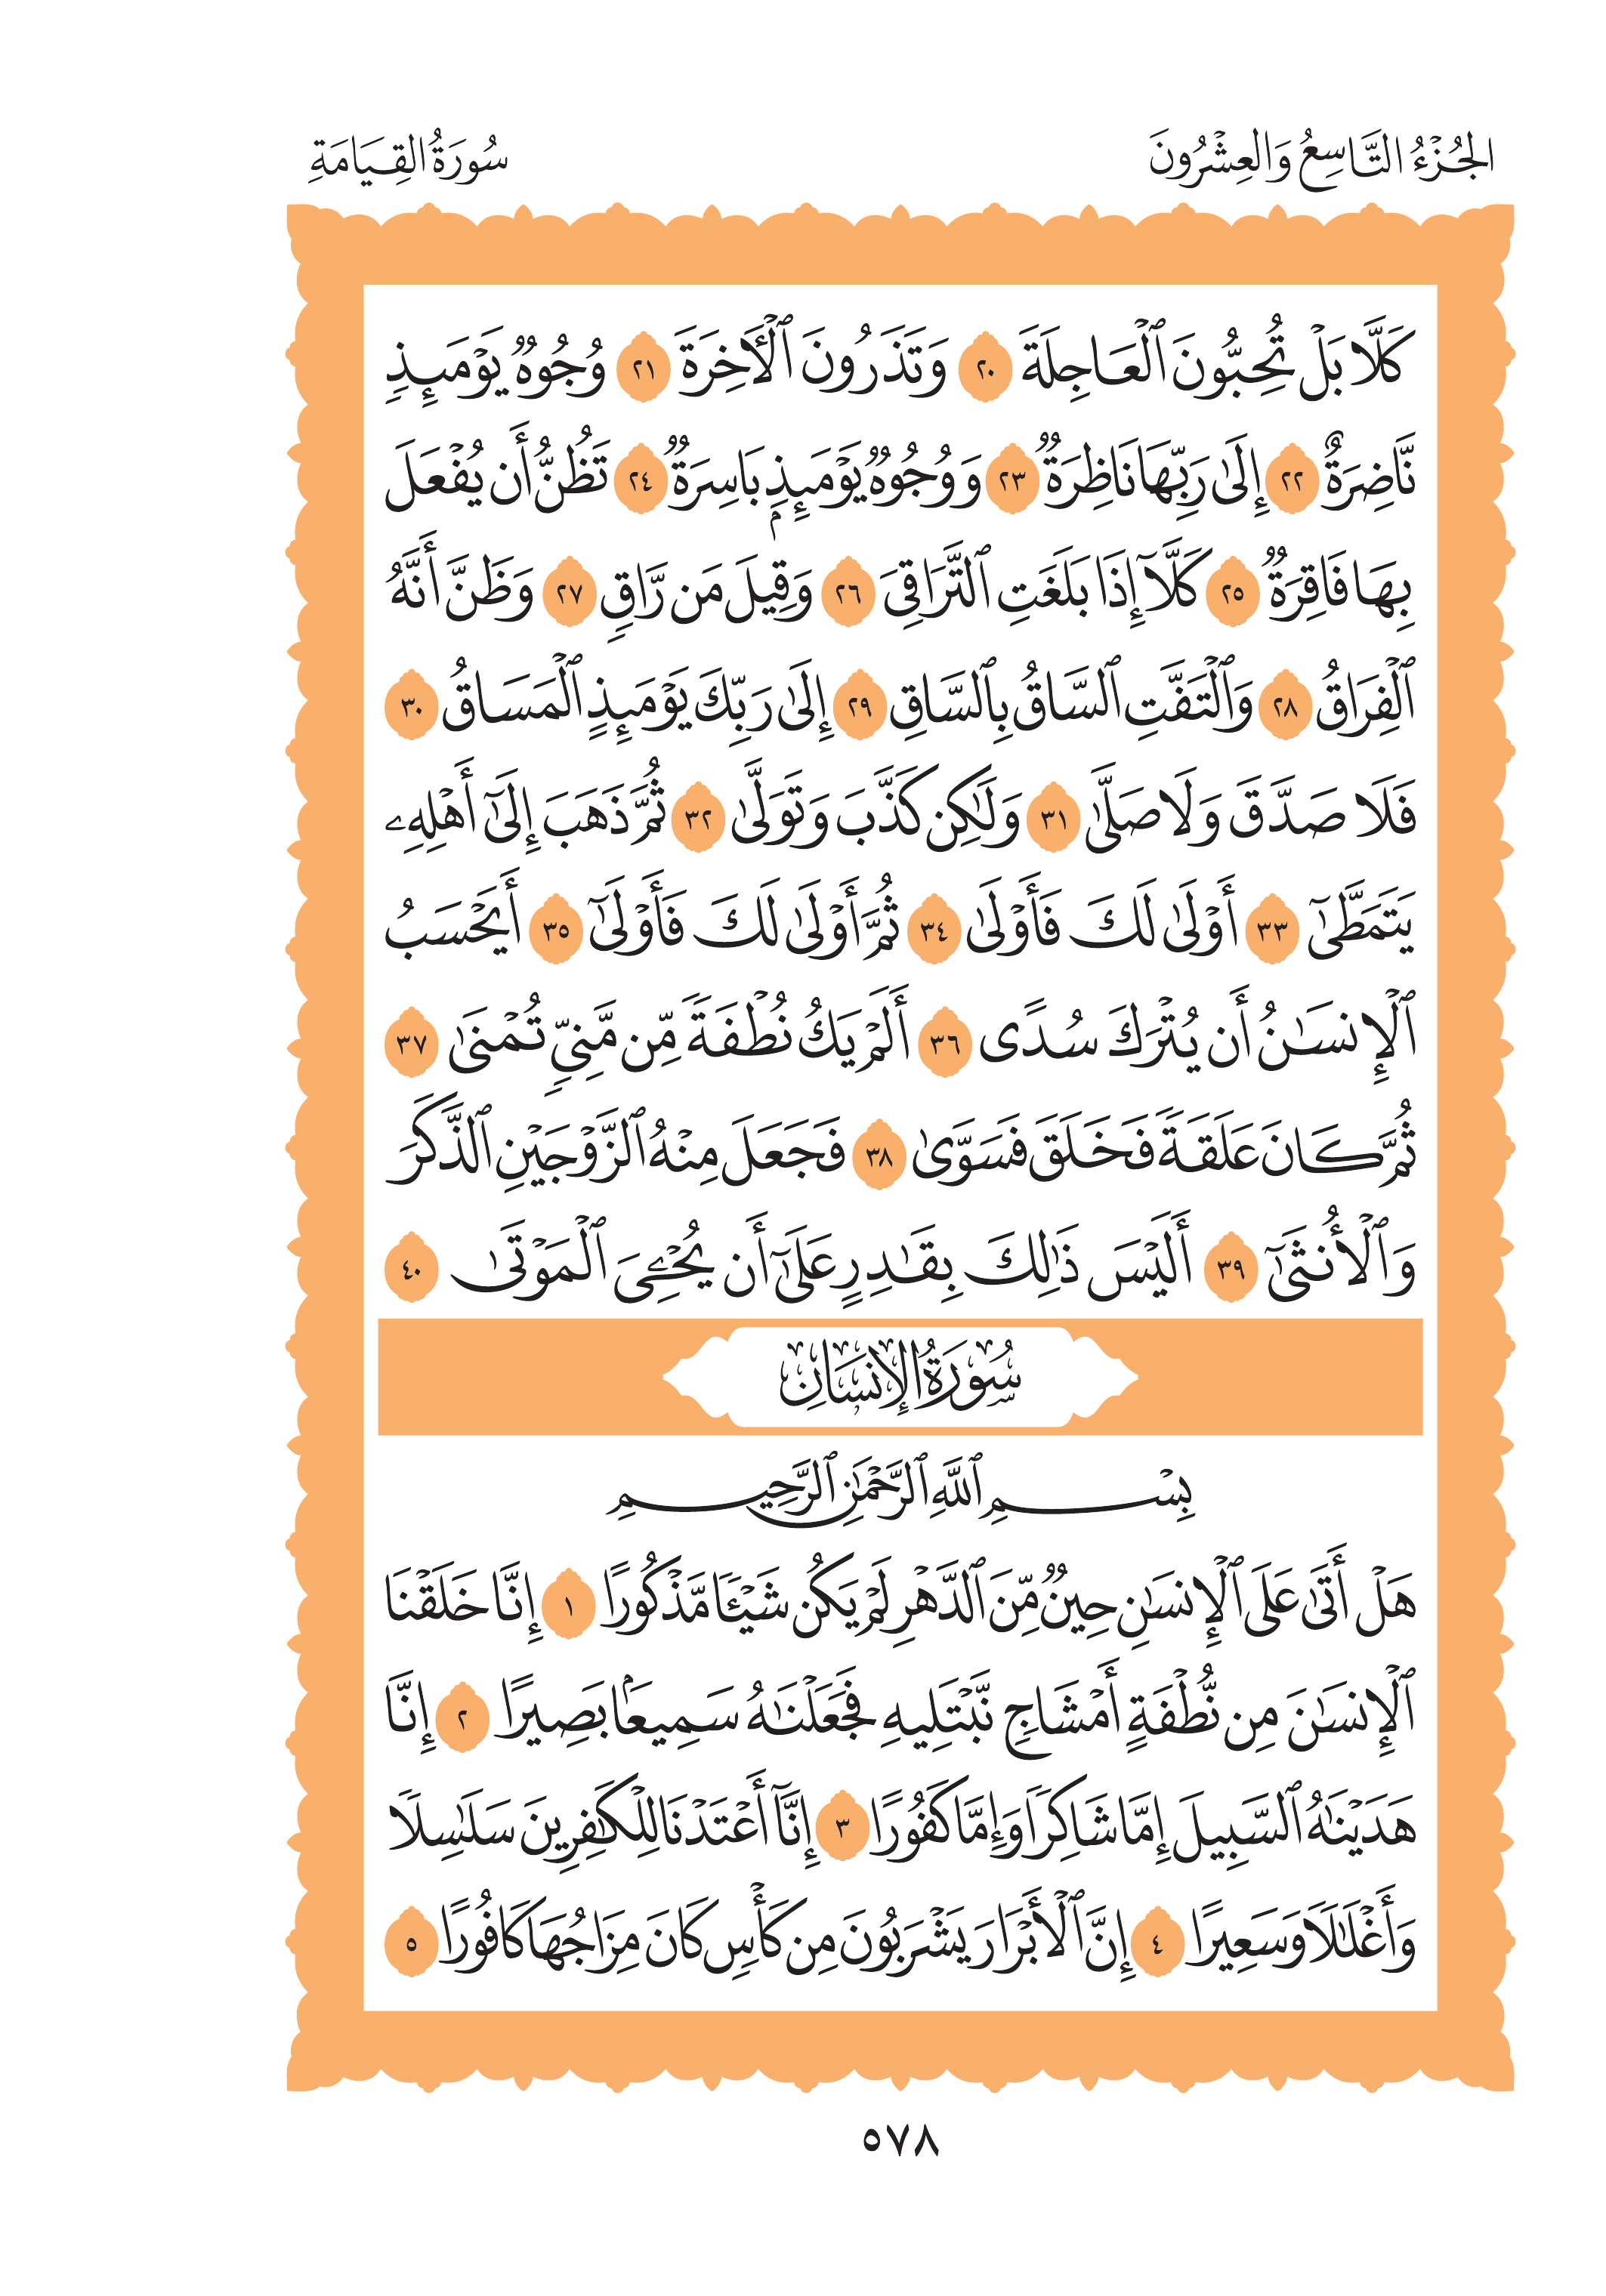 الجُزْءُ التَّاسِعُ وَالعِشْرُونَ
سُورَةُ القِيَامَةِ
كَلَّا بَلْ تُحِبُّونَ ٱلْعَاجِلَةَ ٢٠ وَتَذَرُونَ ٱلْأٓخِرَةَ ٢١ وُجُوهٌ يَوْمَئِذٍ
نَّاضِرَةٌ ٢٢ إِلَىٰ رَبِّهَا نَاظِرَةٌ ٢٣ وَوُجُوهٌ يَوْمَئِذٍۭ بَاسِرَةٌ ٢٤ تَظُنُّ أَن يُفْعَلَ
بِهَا فَاقِرَةٌ ٢٥ كَلَّآ إِذَا بَلَغَتِ ٱلتَّرَاقِيَ ٢٦ وَقِيلَ مَن رَّاقٍ ٢٧ وَظَنَّ أَنَّهُ
ٱلْفِرَاقُ ٢٨ وَٱلْتَفَّتِ ٱلسَّاقُ بِٱلسَّاقِ ٢٩ إِلَىٰ رَبِّكَ يَوْمَئِذٍ ٱلْمَسَاقُ ٣٠
فَلَا صَدَّقَ وَلَا صَلَّىٰ ٣١ وَلَٰكِن كَذَّبَ وَتَوَلَّىٰ ٣٢ ثُمَّ ذَهَبَ إِلَىٰٓ أَهْلِهِۦ
يَتَمَطَّىٰٓ ٣٣ أَوْلَىٰ لَكَ فَأَوْلَىٰ ٣٤ ثُمَّ أَوْلَىٰ لَكَ فَأَوْلَىٰٓ ٣٥ أَيَحْسَبُ
ٱلْإِنسَٰنُ أَن يُتْرَكَ سُدًى ٣٦ أَلَمْ يَكُ نُطْفَةً مِّن مَّنِيٍّ تُمْنَىٰ ٣٧
ثُمَّ كَانَ عَلَقَةً فَخَلَقَ فَسَوَّىٰ ٣٨ فَجَعَلَ مِنْهُ ٱلزَّوْجَيْنِ ٱلذَّكَرَ
وَٱلْأُنثَىٰٓ ٣٩ أَلَيْسَ ذَٰلِكَ بِقَٰدِرٍ عَلَىٰٓ أَن يُحْـِۧيَ ٱلْمَوْتَىٰ ٤٠
سُورَةُ الإِنسَانِ
بِسْمِ ٱللَّهِ ٱلرَّحْمَٰنِ ٱلرَّحِيمِ
هَلْ أَتَىٰ عَلَى ٱلْإِنسَٰنِ حِينٌ مِّنَ ٱلدَّهْرِ لَمْ يَكُن شَيْـًٔا مَّذْكُورًا ١ إِنَّا خَلَقْنَا
ٱلْإِنسَٰنَ مِن نُّطْفَةٍ أَمْشَاجٍ نَّبْتَلِيهِ فَجَعَلْنَٰهُ سَمِيعًۢا بَصِيرًا ٢ إِنَّا
هَدَيْنَٰهُ ٱلسَّبِيلَ إِمَّا شَاكِرًا وَإِمَّا كَفُورًا ٣ إِنَّآ أَعْتَدْنَا لِلْكَٰفِرِينَ سَلَٰسِلَا
وَأَغْلَٰلًا وَسَعِيرًا ٤ إِنَّ ٱلْأَبْرَارَ يَشْرَبُونَ مِن كَأْسٍ كَانَ مِزَاجُهَا كَافُورًا ٥
٥٧٨